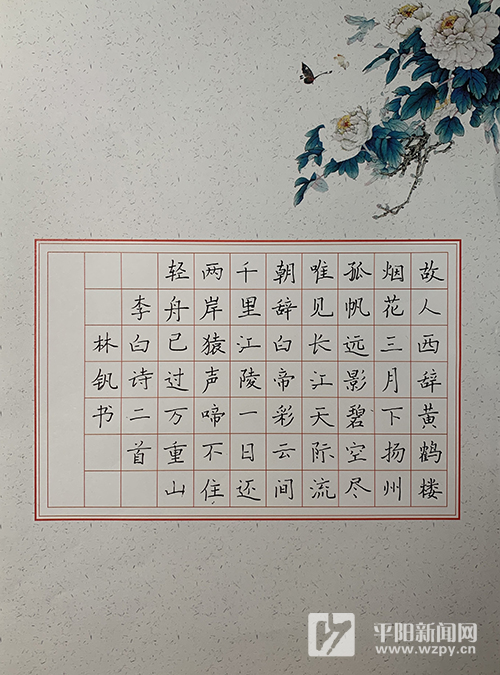 故人西辞黄鹤楼
烟花三月下扬州
孤帆远影碧空尽
唯见长江天际流
朝辞白帝彩云间
千里江陵一日还
两岸猿声啼不住
轻舟已过万重山
李白诗二首
林钒书
平阳新闻网
www.wzpy.cn